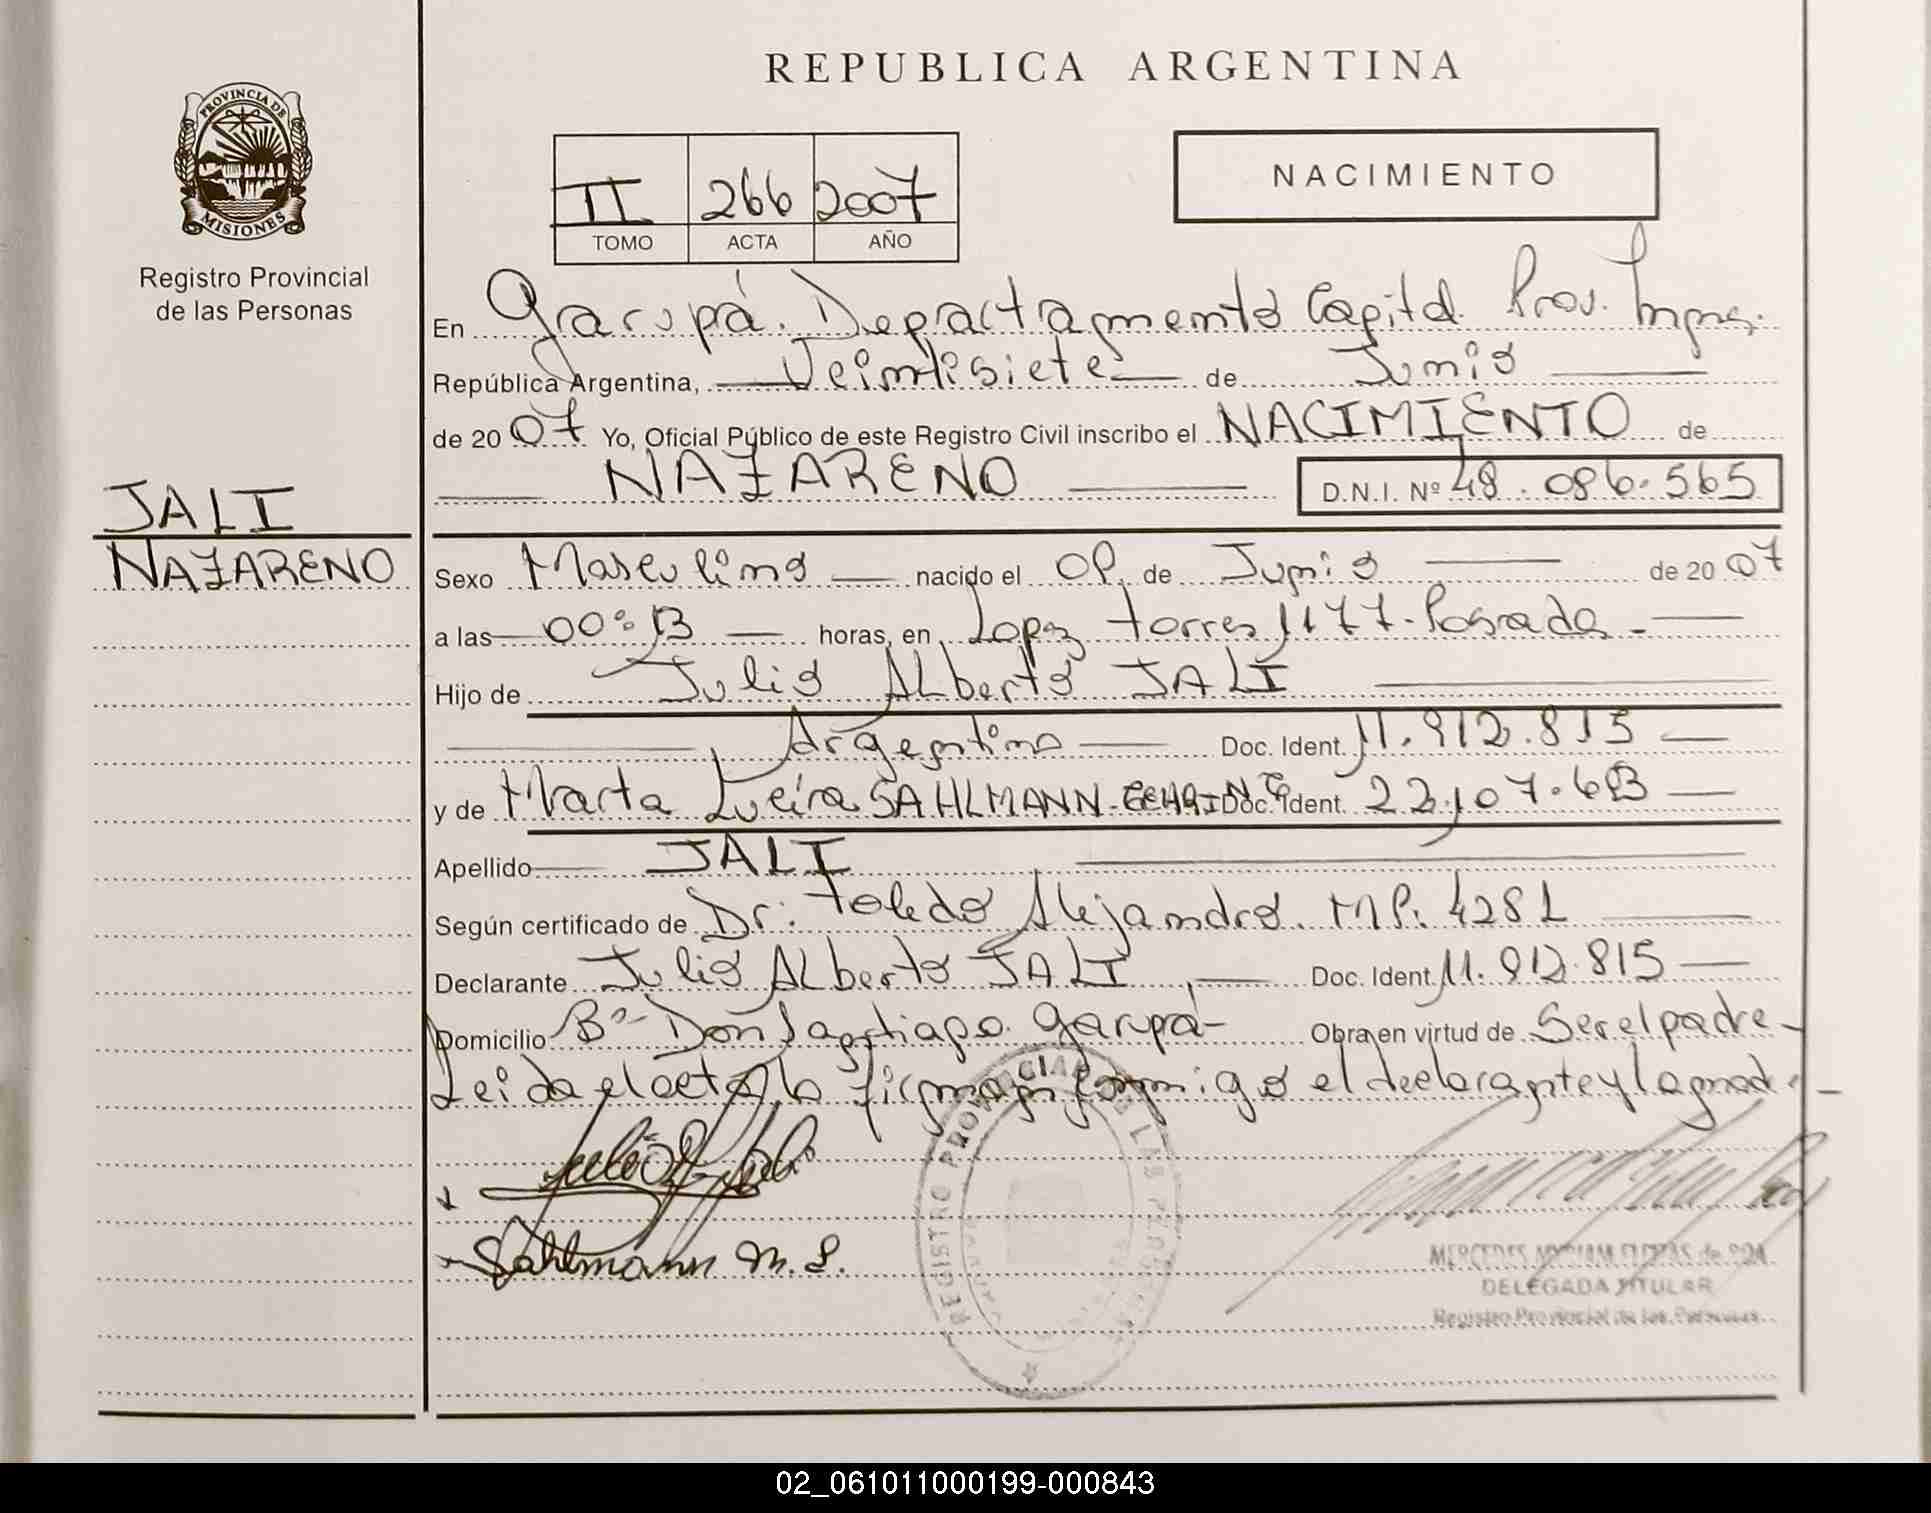 REPUBLICA ARGENTINA
PROVINCIA DE
MISIONES
Registro Provincial
de las Personas
NACIMIENTO
II 266 2007
TOMO ACTA AÑO
En Garupá. Departamento Capital. Prov. Mnes.
República Argentina, Veintisiete de Junio
de 2007 Yo, Oficial Público de este Registro Civil inscribo el NACIMIENTO de
NAZARENO D.N.I. Nº 48.086.565
JALI
NAZARENO
Sexo Masculino nacido el de Junio de 2007
a las horas, en Lopez Torres 1177. Posadas
Hijo de Julio Alberto JALI
Argentino Doc. Ident. 11.912.815
y de Marta SAHLMANN Doc. Ident.
Apellido JALI
Según certificado de Dr. Toledo Alejandro. M.P. 4281
Declarante Julio Alberto JALI Doc. Ident. 11.912.815
Domicilio Bº Don Santiago. Garupá Obra en virtud de Ser el padre
Leida el acta, la firman conmigo el declarante y la madre
Sahlmann M. L.
REGISTRO PROVINCIAL DE LAS PERSONAS
DELEGADA TITULAR
Registro Provincial de las Personas
02_061011000199-000843